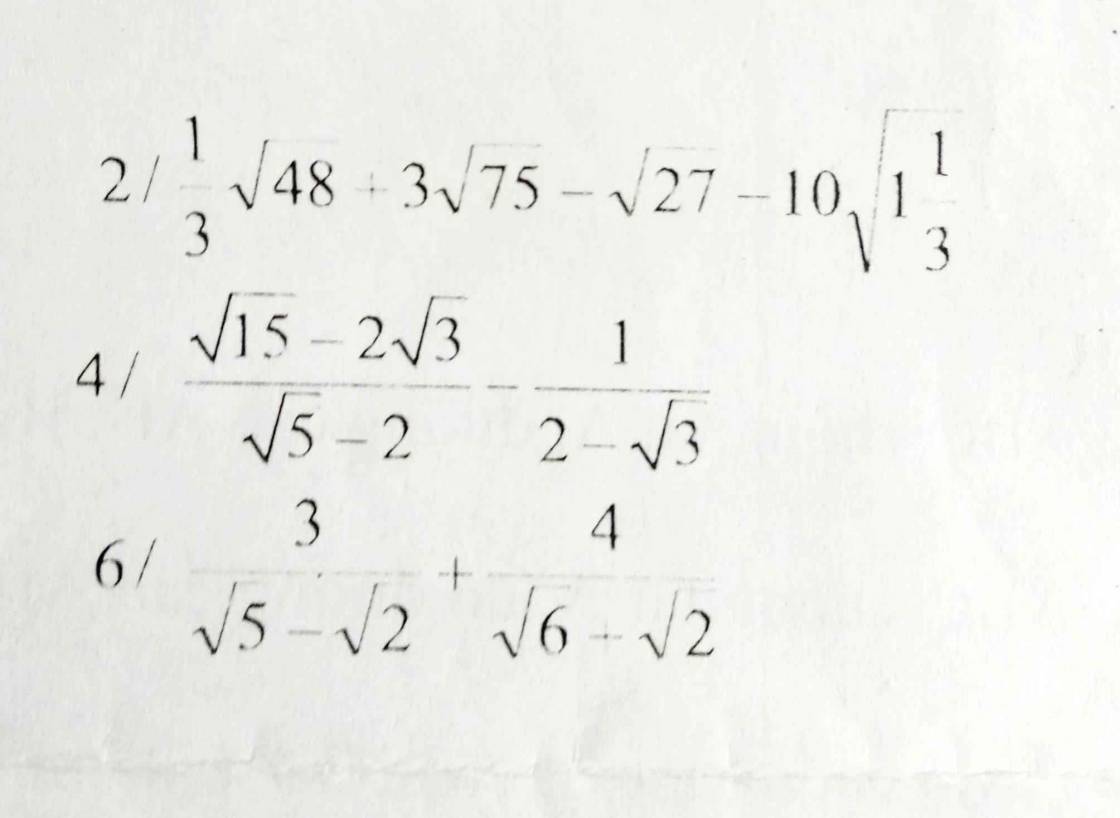 2/ \frac{1}{3}\sqrt{48} + 3\sqrt{75} - \sqrt{27} - 10\sqrt{1\frac{1}{3}}
4/ \frac{\sqrt{15} - 2\sqrt{3}}{\sqrt{5} - 2} - \frac{1}{2 - \sqrt{3}}
6/ \frac{3}{\sqrt{5} - \sqrt{2}} + \frac{4}{\sqrt{6} + \sqrt{2}}